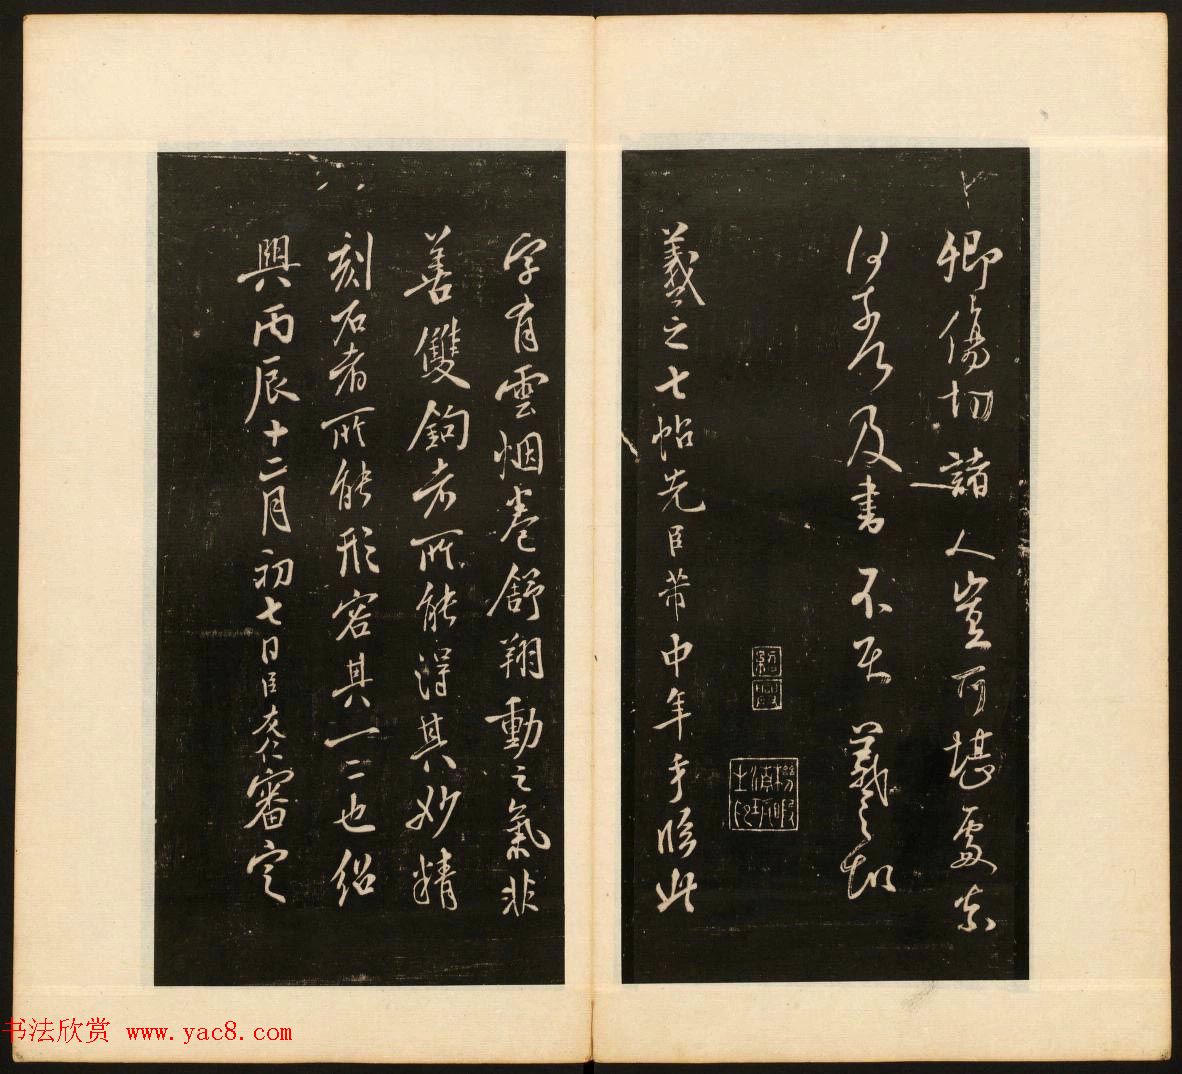 卿傷切諸人豈可堪處奈
何奈何及書不 羲之頓
紹興
羲之七帖先臣芾中年手臨此
字有雲烟卷舒翔動之氣非
善雙鉤者所能得其妙精
刻石者所能形容其一二也紹
興丙辰十二月初七日臣友仁審定
书法欣赏 www.yac8.com